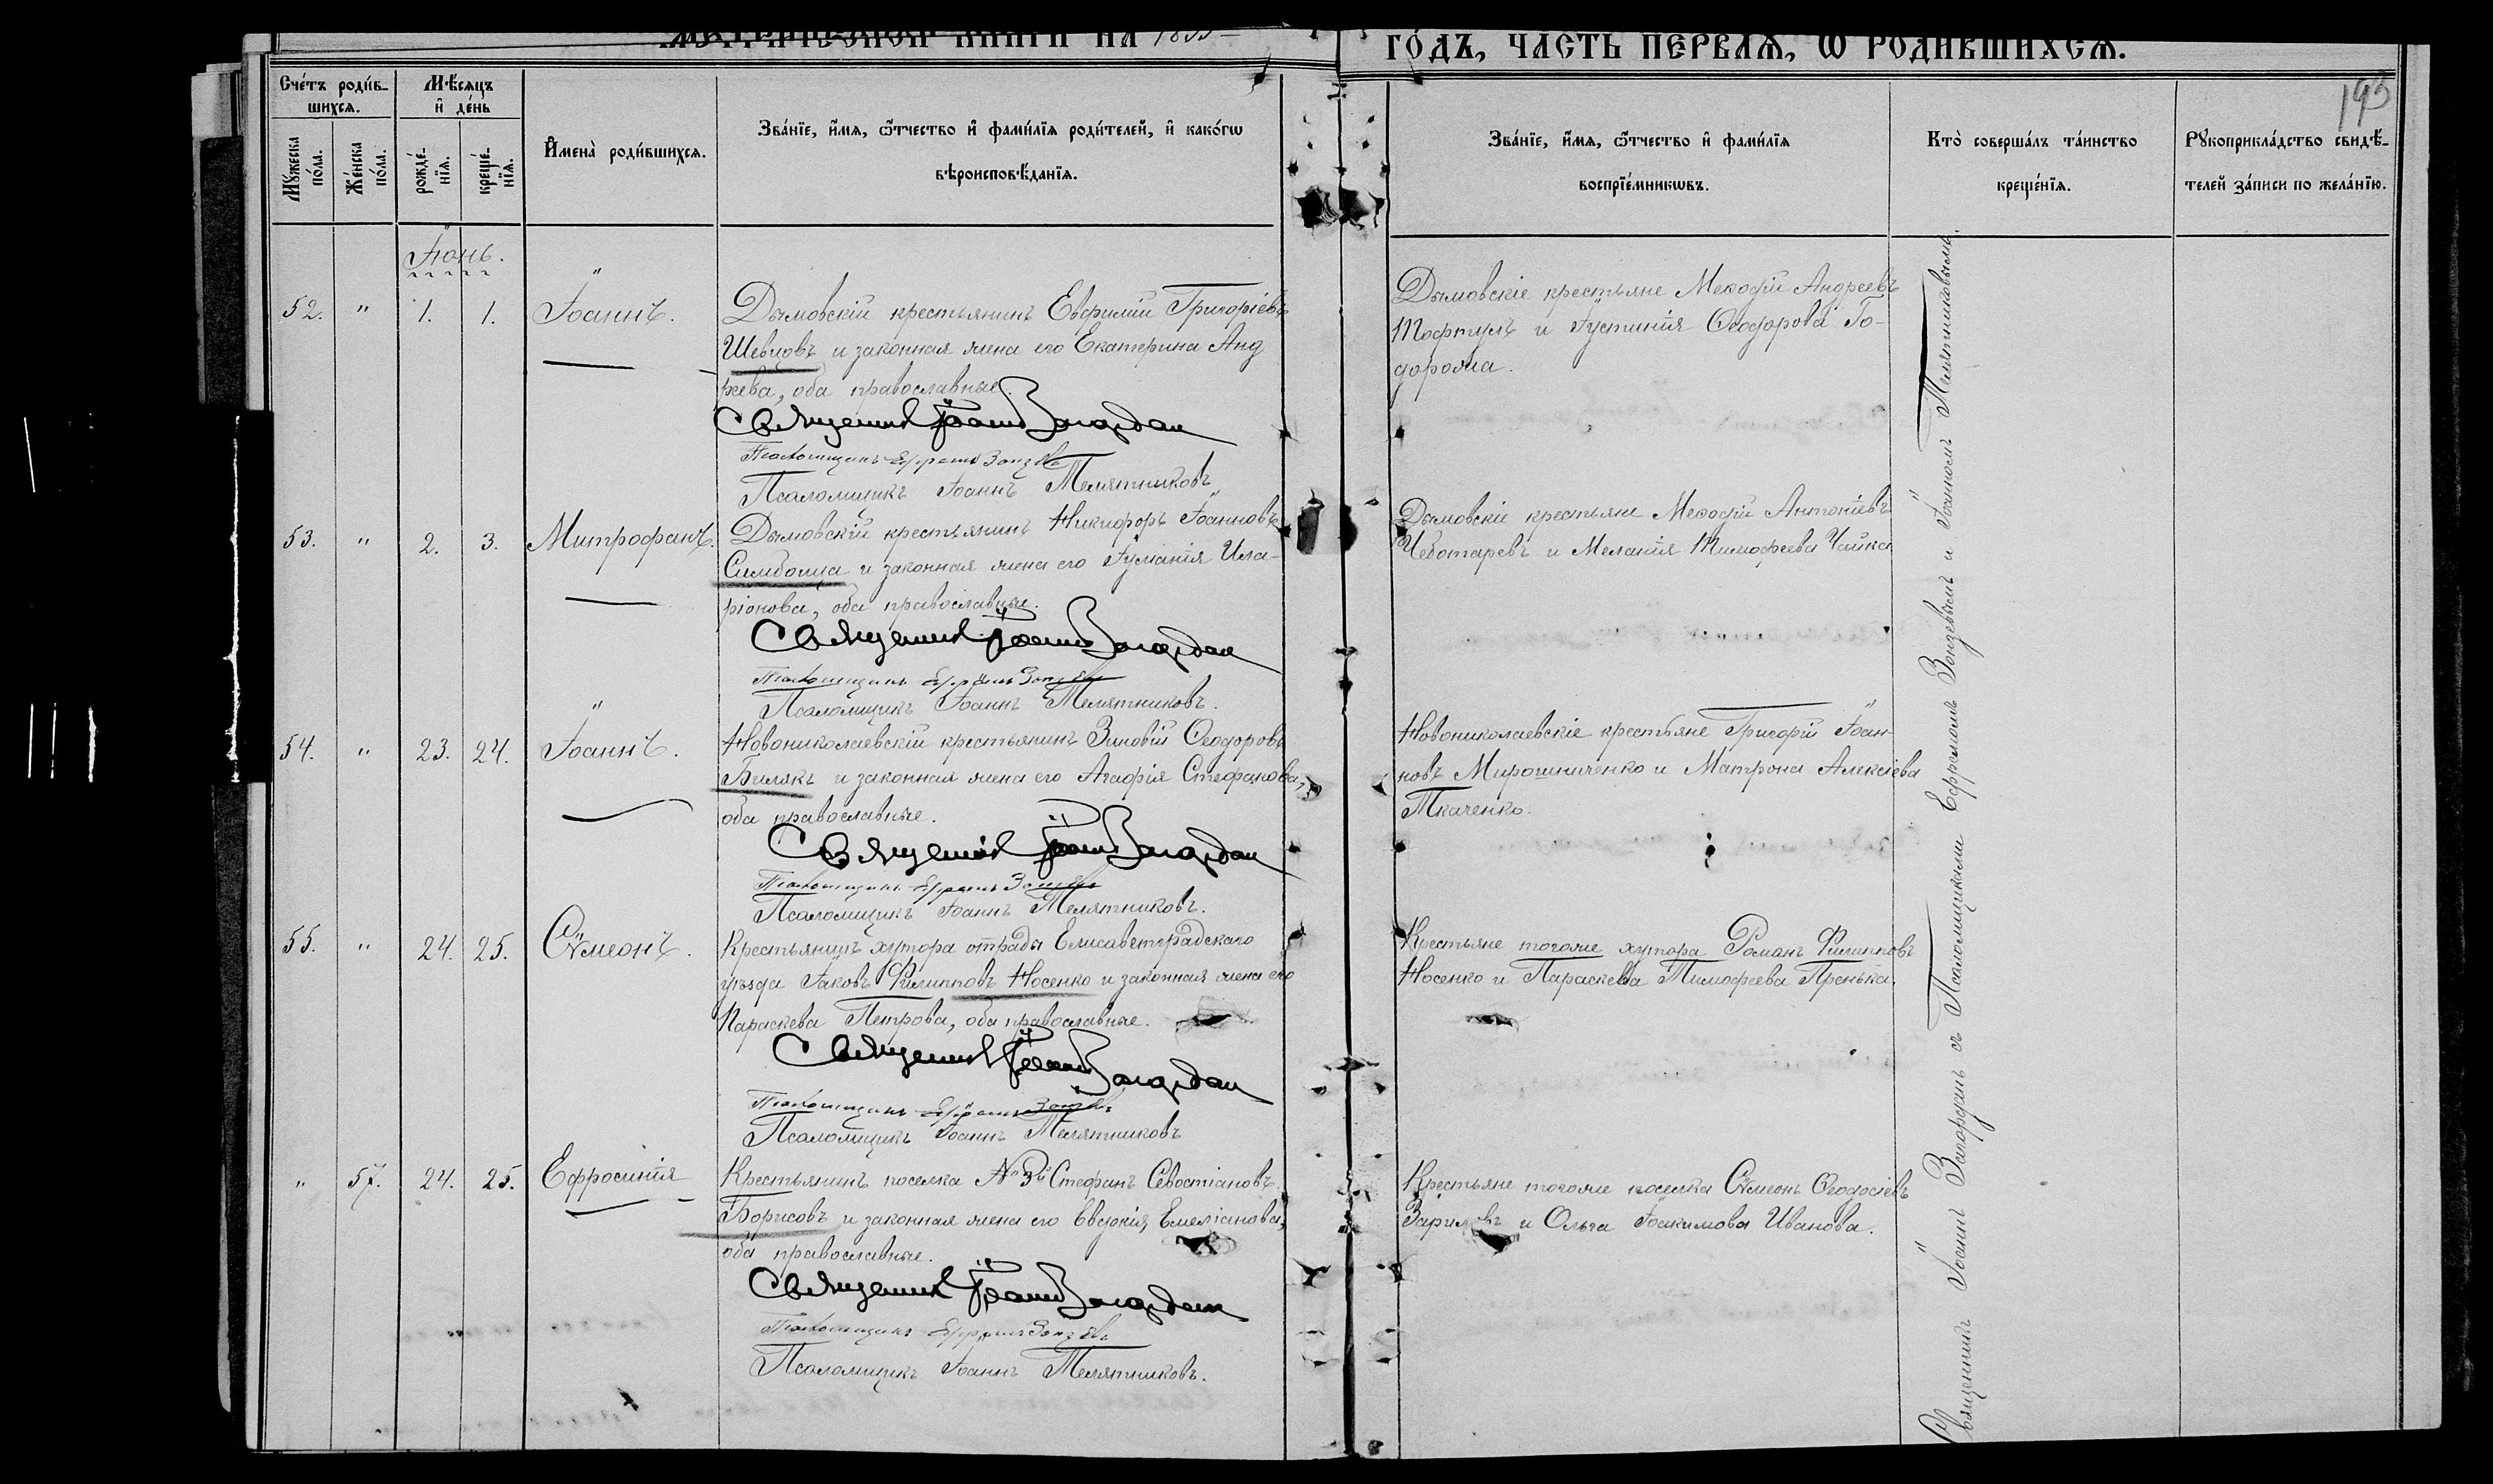 МЕТРИЧЕСКОЙ КНИГИ НА
ГОДЪ, ЧАСТЬ ПЕРВАЯ, Ѡ РОДИВШИХСЯ.
193
Сче́тъ роди́в-
шихся.
Мѣ́сяцъ
и҆ де́нь
Му́жеска по́ла.
Же́нска по́ла.
рожде́-
нїя.
креще́-
нїя.
И҆мена̀ роди́вшихся.
Зва́нїе, и҆́мя, ѻ҆́тчество и҆ фами́лїя роди́телей, и҆ како́гѡ
вѣроисповѣ́данїя.
Зва́нїе, и҆́мя, ѻ҆́тчество и҆ фами́лїя
воспрїе́мникѡвъ.
Кто̀ соверша́лъ та́инство
креще́нїя.
Рукоприкла́дство свидѣ́-
телей за́писи по жела́нїю.
Іюнь.
52. " 1. 1. Іоаннъ.
Дымовскій крестьянинъ Евфимій Григоріевъ
Шевцовъ и законная жена его Екатерина Анд
реева, оба православные.
Священникъ Іоаннъ Загордан
Псаломщикъ Ефремъ Зонзевъ
Псаломщикъ Іоаннъ Телятниковъ
Дымовскіе крестьяне Меѳодій Андреевъ
Тофтулъ и Іустинія Ѳеодорова Го-
дорожа.
53. " 2. 3. Митрофанъ.
Дымовскій крестьянинъ Никифоръ Іоанновъ
Симбоица и законная жена его Іуманія Ила-
ріонова, оба православные.
Священникъ Іоаннъ Загордан
Псаломщикъ Ефремъ Зонзевъ
Псаломщикъ Іоаннъ Телятниковъ.
Дымовскіе крестьяне Меѳодій Антоніевъ
Чеботаревъ и Меланія Тимофеева Чайка
54. " 23. 24. Іоаннъ.
Новониколаевскій крестьянинъ Зиновій Ѳеодоровъ
Билякъ и законная жена его Агафія Стефанова,
оба православные.
Священникъ Іоаннъ Загордан
Псаломщикъ Ефремъ Зонзевъ
Псаломщикъ Іоаннъ Телятниковъ.
Новониколаевскіе крестьяне Григорій Іоан-
новъ Мирошниченко и Матрона Алексіева
Ткаченко.
55. " 24. 25. Сѵмеонъ.
Крестьянинъ хутора отрады Елисаветградскаго
уѣзда Іаковъ Филипповъ Носенко и законная жена его
Параскева Петрова, оба православные.
Священникъ Іоаннъ Загордан
Псаломщикъ Ефремъ Зонзевъ
Псаломщикъ Іоаннъ Телятниковъ
Крестьяне тогоже хутора Романъ Филипповъ
Носенко и Параскева Тимофеева Пренька.
" 57. 24. 25. Ефросинія
Крестьянинъ поселка № 3й Стефанъ Севостіановъ
Борисовъ и законная жена его Евдокія Емеліанова,
оба православные.
Священникъ Іоаннъ Загордан
Псаломщикъ Ефремъ Зонзевъ
Псаломщикъ Іоаннъ Телятниковъ.
Крестьяне тогоже поселка Сѵмеонъ Ѳеодосіевъ
и Ольга Іоакимова Иванова.
Священникъ Іоаннъ Загорданъ съ Псаломщиками Ефремомъ Зонзевымъ и Іоанномъ Телятниковымъ.